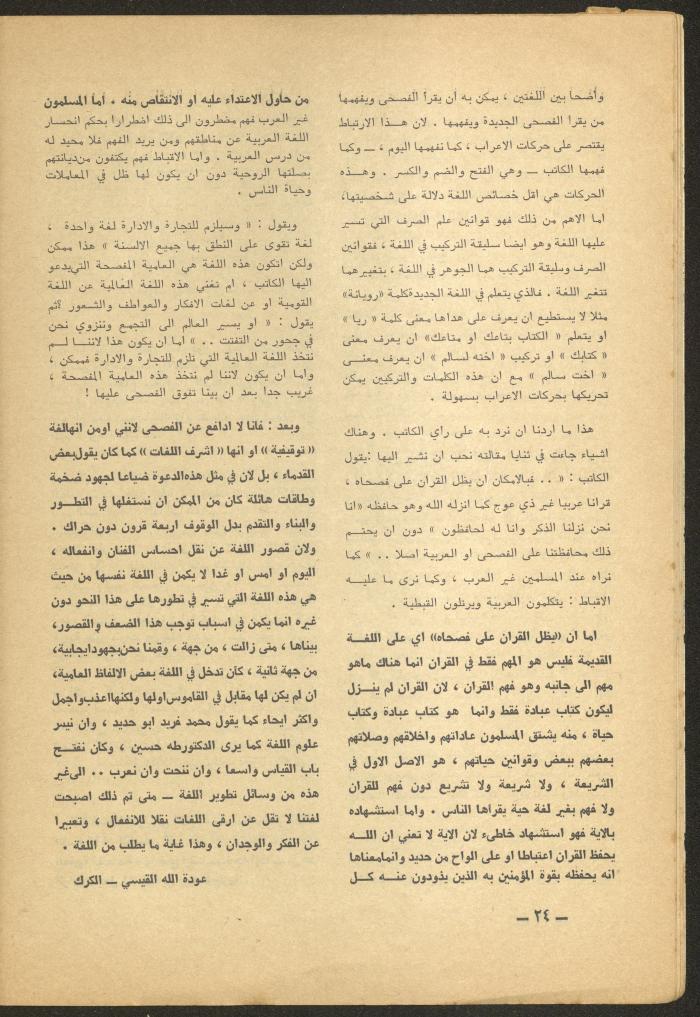 وأضحا بين اللغتين ، يمكن به أن يقرأ الفصحى ويفهمها
من يقرأ الفصحى الجديدة ويفهمها . لان هـــذا الارتباط
يقتصر على حركات الاعراب ، كما نفهمها اليوم ، ــ وكما
فهمها الكاتب ــ وهي الفتح والضم والكسر . وهـــذه
الحركات هي اقل خصائص اللغة دلالة على شخصيتها،
اما الاهم من ذلك فهو قوانين علم الصرف التي تسير
عليها اللغة وهو ايضا سليقة التركيب في اللغة ، فقوانين
الصرف وسليقة التركيب هما الجوهر في اللغة ، بتغييرهما
تتغير اللغة . فالذي يتعلم في اللغة الجديدة كلمة «روياتة»
مثلا لا يستطيع ان يعرف على هداها معنى كلمة « ريا »
او يتعلم « الكتاب بتاعك او متاعك» ان يعرف معنى
« كتابك » او تركيب « اخته لسالم » ان يعرف معنــى
« اخت سالم » مع ان هذه الكلمات والتركيين يمكن
تحريكها بحركات الاعراب بسهولة .
هذا ما اردنا ان نرد به على راي الكاتب . وهناك
اشياء جاءت في ثنايا مقالته نحب ان نشير اليها : يقول
الكاتب : « . . فبالامكان ان يظل القرآن على فصحاه ،
قرآنا عربيا غير ذي عوج كما انزله الله وهو حافظه «انا
نحن نزلنا الذكر وانا له لحافظون » دون ان يحتــم
ذلك محافظتنا على الفصحى او العربية اصلا . . » كما
نراه عند المسلمين غير العرب ، وكما نرى ما عليـــه
الاقباط : يتكلمون العربية ويرتلون القبطية .
اما ان «يظل القرآن على فصحاه» اي على اللغــة
القديمة فليس هو المهم فقط في القرآن انما هناك ماهو
مهم الى جانبه وهو فهم القرآن ، لان القرآن لم ينــزل
ليكون كتاب عبادة فقط وانما هو كتاب عبادة وكتاب
حياة ، منه يشتق المسلمون عاداتهم واخلاقهم وصلاتهم
بعضهم ببعض وقوانين حياتهم ، هو الاصل الاول في
الشريعة ، ولا شريعة ولا تشريع دون فهم للقرآن
ولا فهم بغير لغة حية يقراها الناس . واما استشهاده
بالاية فهو استشهاد خاطىء لان الاية لا تعني ان اللــه
يحفظ القرآن اعتباطا او على الواح من حديد وانمامعناها
انه يحفظه بقوة المؤمنين به الذين يذودون عنـــه كــل
من حاول الاعتداء عليه او الانتقاص منه . اما المسلمون
غير العرب فهم مضطرون الى ذلك اضطرارا بحكم انحسار
اللغة العربية عن مناطقهم ومن يريد الفهم فلا محيد له
من درس العربية . واما الاقباط فهم يكتفون من ديانتهم
بصلتها الروحية دون ان يكون لها ظل في المعاملات
وحياة الناس .
ويقول : « وسيلزم للتجارة والادارة لغة واحدة ،
لغة تقوى على النطق بها جميع الالسنة » هذا ممكن
ولكن اتكون هذه اللغة هي العامية المفصحة التي يدعو
اليها الكاتب ، ام تغني هذه اللغة العالمية عن اللغة
القومية او عن لغات الافكار والعواطف والشعور ؟ ثم
يقول : « او يسير العالم الى التجمع وننزوي نحن
في جحور من التفتت . . » اما ان يكون هذا لاننــا لــم
نتخذ اللغة العالمية التي تلزم للتجارة والادارة فممكن ،
واما ان يكون لاننا لم نتخذ هذه العامية المفصحة ،
غريب جدا بعد ان بينا تفوق الفصحى عليها !
وبعد : فانا لا ادافع عن الفصحى لانني اومن انهالغة
« توقيفية » او انها « اشرف اللغات » كما كان يقول بعض
القدماء ، بل لان في مثل هذه الدعوة ضياعا لجهود ضخمة
وطاقات هائلة كان من الممكن ان نستغلها في التطــور
والبناء والتقدم بدل الوقوف اربعة قرون دون حراك .
ولان قصور اللغة عن نقل احساس الفنان وانفعاله ،
اليوم او امس او غدا لا يكمن في اللغة نفسها من حيث
هي هذه اللغة التي تسير في تطورها على هذا النحو دون
غيره انما يكمن في اسباب توجب هذا الضعف والقصور،
بيناها ، متى زالت ، من جهة ، وقمنا نحن بجهود ايجابية،
من جهة ثانية ، كأن ندخل في اللغة بعض الالفاظ العامية،
ان لم يكن لها مقابل في القاموس اولها ولكنها اعذب واجمل
واكثر ايحاء كما يقول محمد فريد ابو حديد ، وان نيسر
علوم اللغة كما يرى الدكتور طه حسين ، وكان نفتــح
باب القياس واسعا ، وان ننحت وان نعرب . . الى غير
هذه من وسائل تطوير اللغة ــ متى تم ذلك اصبحت
لغتنا لا تقل عن ارقى اللغات نقلا للانفعال ، وتعبيرا
عن الفكر والوجدان ، وهذا غاية ما يطلب من اللغة .
عودة الله القيسي ــ الكرك
ــ ٢٤ ــ